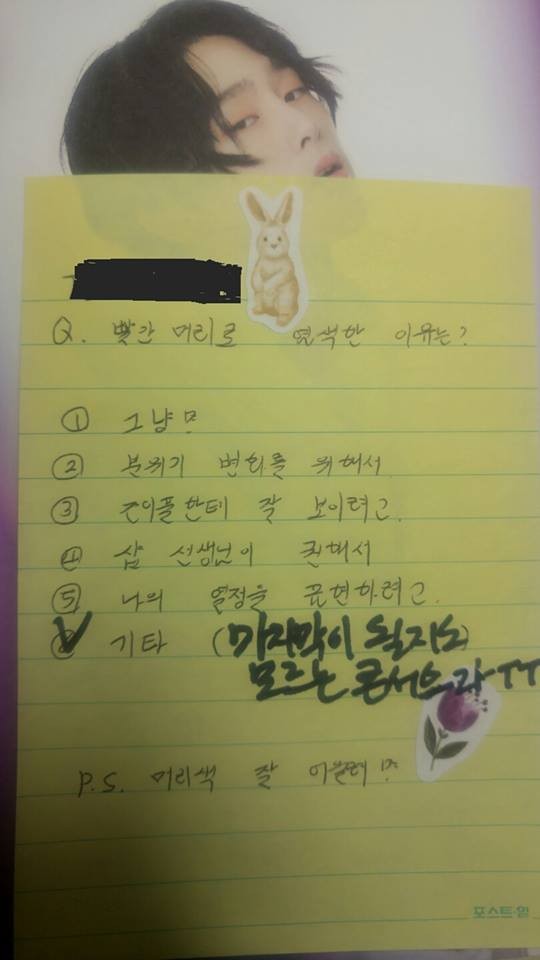 Q. 빨간 머리로 염색한 이유는?
① 그냥!?
② 분위기 변화를 위해서
③ 주이플한테 잘 보이려고.
④ 샵 선생님이 권해서
⑤ 나의 열정을 표현하려고.
V 기타 (마지막이 될지도
모르는 콘서트라 ㅜㅜ)
P.S. 머리색 잘 어울려!?
포스트-잇